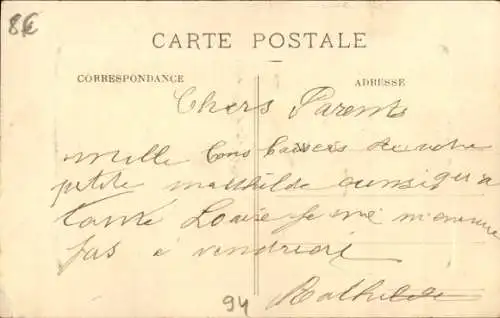 8€
CARTE POSTALE
CORRESPONDANCE
ADRESSE
Chers Parents
Mille bons baisers de votre
petite Mathilde ainsi qu'a
tante Louise je me m'ennuie
pas a vendredi
Mathilde
94